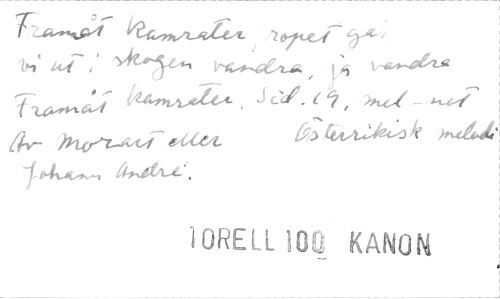 Framåt Kamrater ropet går
vi ut i skogen vandra, ja vandra
Framåt Kamrater. Sid. 19, mel-not
Av Mozart eller Österrikisk melodi
Johann André.
TORELL 100 KANON